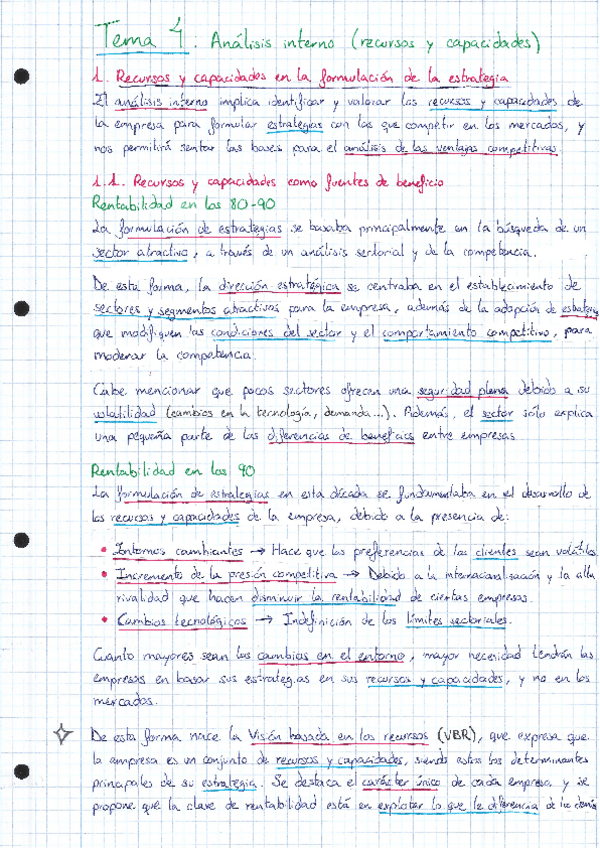 Tema 4. Análisis interno (recursos y capacidades)
1. Recursos y capacidades en la formulación de la estrategia
El análisis interno implica identificar y valorar los recursos y capacidades de
la empresa para formular estrategias con las que competir en los mercados, y
nos permitirá sentar las bases para el análisis de las ventajas competitivas.
1.1. Recursos y capacidades como fuentes de beneficio
Rentabilidad en los 80-90
La formulación de estrategias se basaba principalmente en la búsqueda de un
sector atractivo, a través de un análisis sectorial y de la competencia.
De esta forma, la dirección estratégica se centraba en el establecimiento de
sectores y segmentos atractivos para la empresa, además de la adopción de
que modifiquen las condiciones del sector y el comportamiento competitivo, para
moderar la competencia.
Cabe mencionar que pocos sectores ofrecen una seguridad plena debido a su
volatilidad (cambios en la tecnología, demanda...). Además, el sector sólo explica
una pequeña parte de las diferencias de beneficios entre empresas.
Rentabilidad en los 90
La formulación de estrategias en esta década se fundamentaba en el desarrollo de
los recursos y capacidades de la empresa, debido a la presencia de:
• Entornos cambiantes → Hace que las preferencias de los clientes sean volátiles.
• Incremento de la presión competitiva → Debido a la internacionalización y la alta
rivalidad que hacen disminuir la rentabilidad de ciertas empresas.
• Cambios tecnológicos → Indefinición de los límites sectoriales.
Cuanto mayores sean los cambios en el entorno, mayor necesidad tendrán las
empresas en basar sus estrategias en sus recursos y capacidades, y no en los
mercados.
De esta forma nace la Visión basada en los recursos (VBR), que expresa que
la empresa es un conjunto de recursos y capacidades, siendo estos los determinantes
principales de su estrategia. Se destaca el carácter único de cada empresa y se
propone que la clave de rentabilidad está en explotar lo que le diferencia de las demás